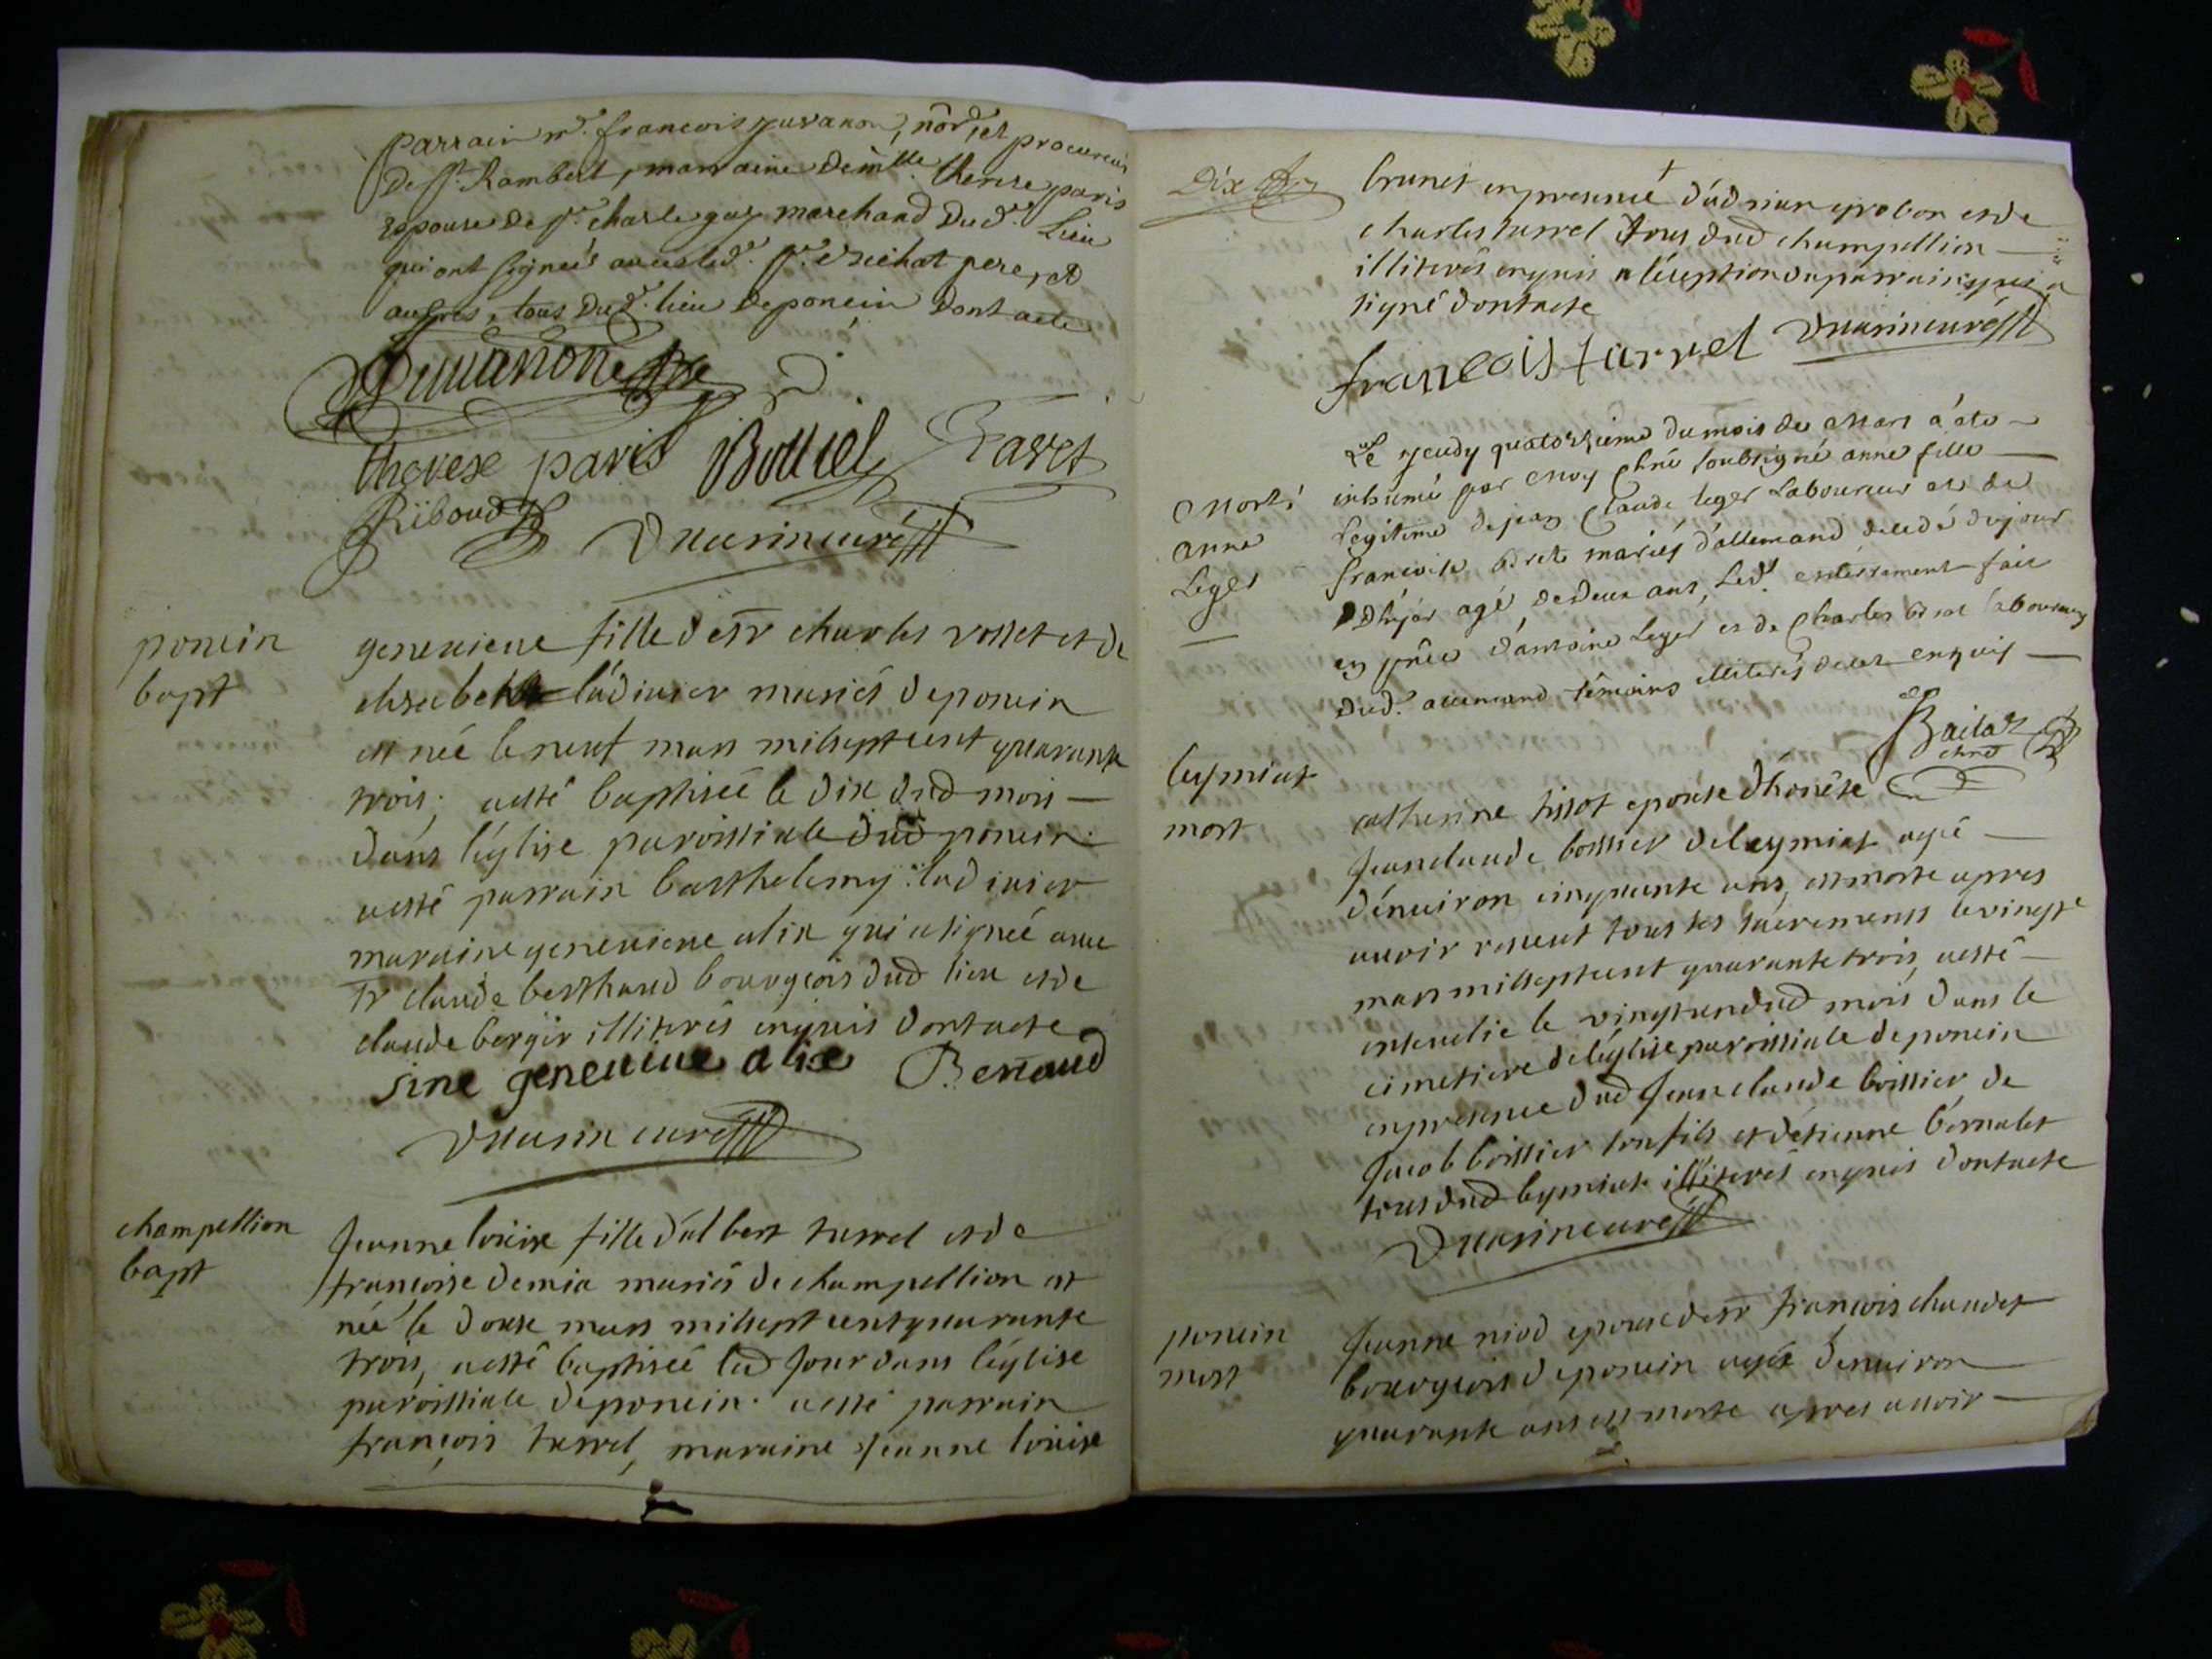 parrain mr. francois juvanon, nore, et procureur
De St. Rambert, marraine Demlle. therese paris
Epouse De Sr. charle guy marchand Dud. Lieu
qui ont signées avec led. Sr. Erichat pere, et
autres, tous Dud. lieu De poncin Dont acte
Juvanon
therese paris Bottiel Ravet
Riboud
curé
poncin
bapt
genevieve fille de sr charles rosset et de
elisabeth ladivier mariés de poncin
est née le neuf mars mil sept cent quarante
trois, a esté baptiseé le dix dud mois
dans l'église paroissiale dud poncin.
a esté parrain barthelemy ladivier
maraine genevieve alix qui a signeé avec
sr claude berthaud bourgeois dud lieu et de
claude berger illiterés enquis dont acte
sine genevieve alix Bertaud
curé
champellion
bapt
Jeanne loüise fille d'albert turrel et de
françoise demia mariés de champellion est
née le douse mars mil sept cent quarante
trois, a esté baptiseé lad Jour dans l'église
paroissiale de poncin. a esté parrain
françois turrel, maraine Jeanne loüise
Dix
brunet en presence d'adrian et de
charles turrel tous dud champellion
illiterés enquis a l'exception du parrain qui a
signé dont acte
francois turrel curé
Le jeudy quatorzieme du mois de Mars a été
Mort
anne
Leger
inhumé par Moy soubsigné anne fille
Legitime de jean Claude leger Laboureur et de
francoise mariés d'allemand decedé du jour
D'hyer agé de deux ans, Led. enterrement fait
en pnce d'antoine Leger et de Charles laboureurs
Dud. allemand témoins illiterés de ce enquis
Bailat
leymiat
mort
catherine tissot epouse d'honéte
Jean claude boissier de leymiat agé
d'environ cinquante ans, est morte apres
avoir receut tous les sacrements le vingt
mars mil sept cent quarante trois, a esté
ensevelie le vingt un dud mois dans le
cimetiere de l'église paroissiale de poncin
en presence dud Jean claude boissier, de
Jacob boissier son fils et d'étienne bernalet
tous dud leymiat illiterés enquis dont acte
curé
poncin
mort
Jeanne niod epouse de sr françois chaudet
bourgeois de poncin ageé d'environ
quarante ans est morte apres avoir